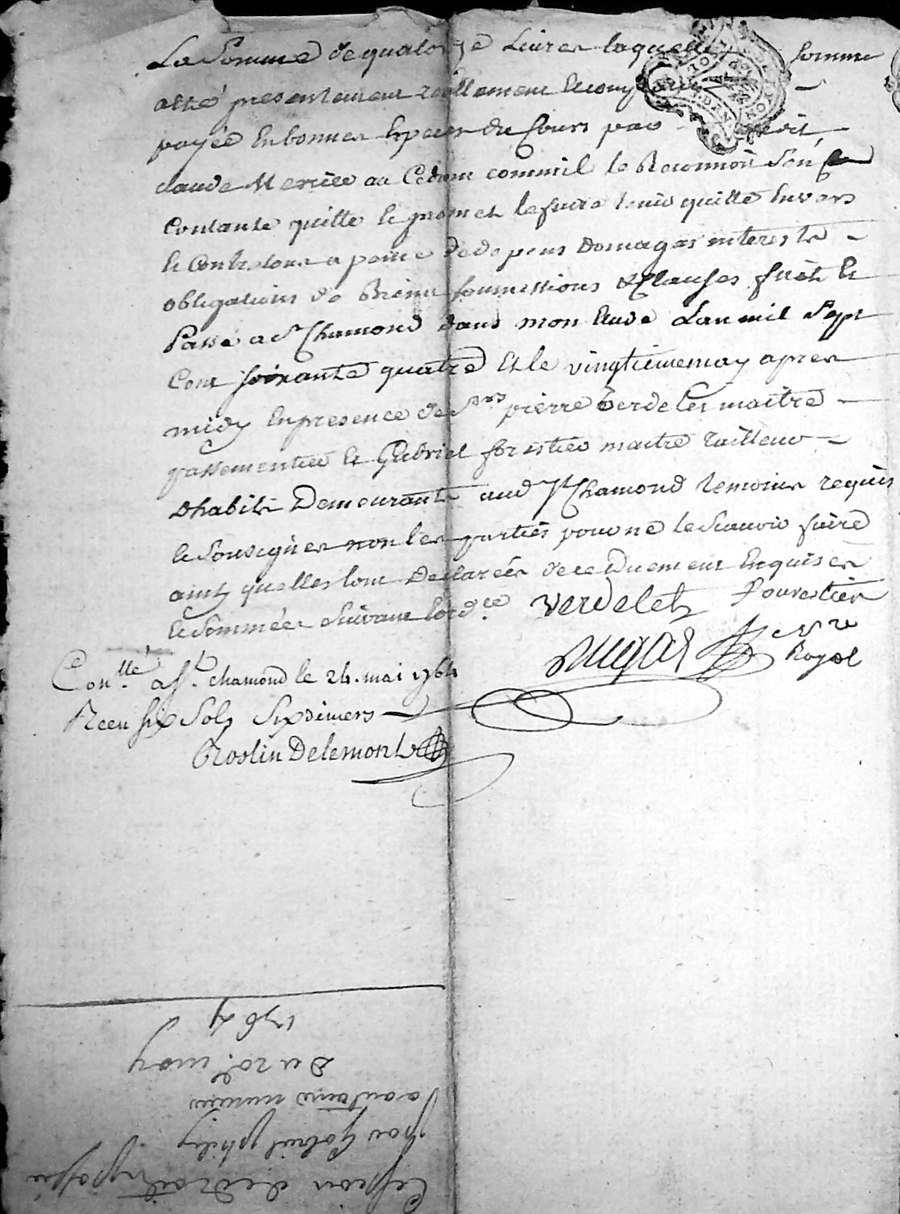 La Somme de quatorze Livres laquelle somme
a été presentement reellement
payée en bonnes especes du Cours par
claude Mercier au Cedant comm'il le Reconnoit s'en
contante quitte et promet le faire tenir quitte envers
et contre tous a peine de depens domages interests
obligations de Biens soumissions & Clauses fait et
Passé a St Chamond dans mon Etude L'an mil Sept
Cent soixante quatre et le vingtieme may apres
midy En presence de Srs pierre Verdelet maitre
passementier et Gabriel forestier maitre tailleur
Dhabits Demeurants aud St Chamond temoins requis
et Soussignes non les parties pour ne le Scavoir faire
ainsy quelles l'ont Declarées de ce Duement Enquises
et Sommées Suivant l'ord.ce verdelet fourestier
Dugas nre Royal
Con.llé a St chamond le 24 mai 1764
Receu six Sols Six deniers
Roslin Delemont
Cession de droit passée
par Gabriel
a antoine
Du 20e may
1764